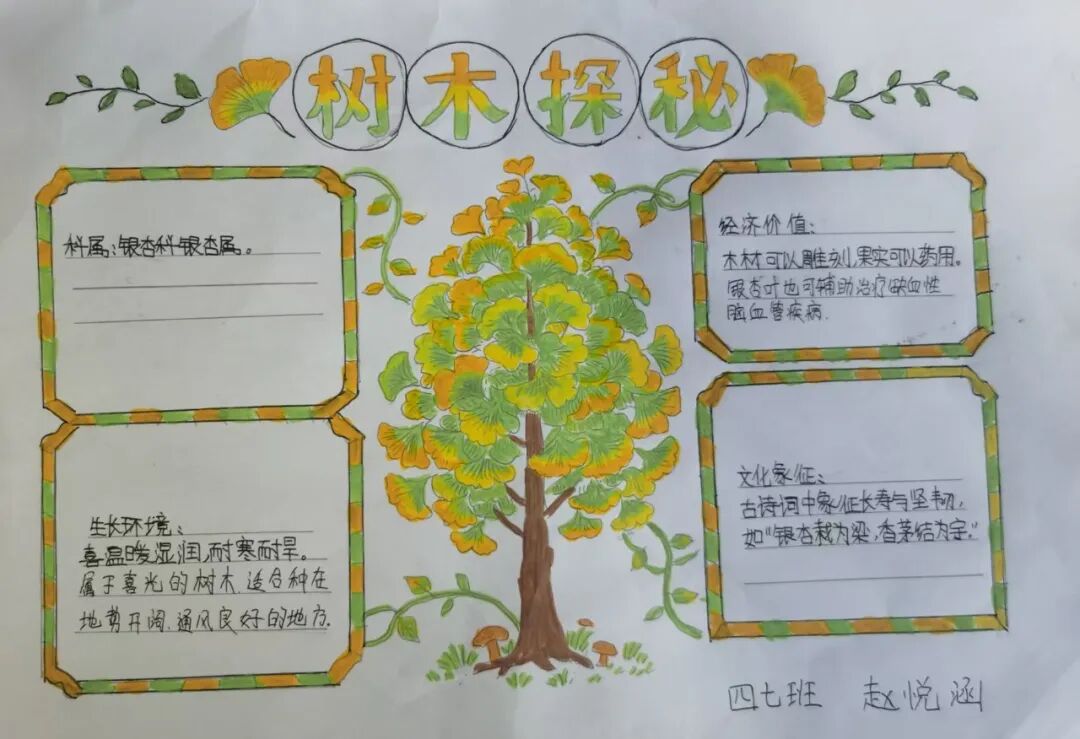 树木探秘
科属：银杏科银杏属。
生长环境：
喜温暖湿润，耐寒耐旱。
属于喜光的树木.适合种在
地势开阔.通风良好的地方.
经济价值：
木材可以雕刻，果实可以药用。
银杏叶也可辅助治疗缺血性
脑血管疾病.
文化象征：
古诗词中象征长寿与坚韧，
如“银杏栽为梁，香茅结为宇。”
四七班 赵悦涵